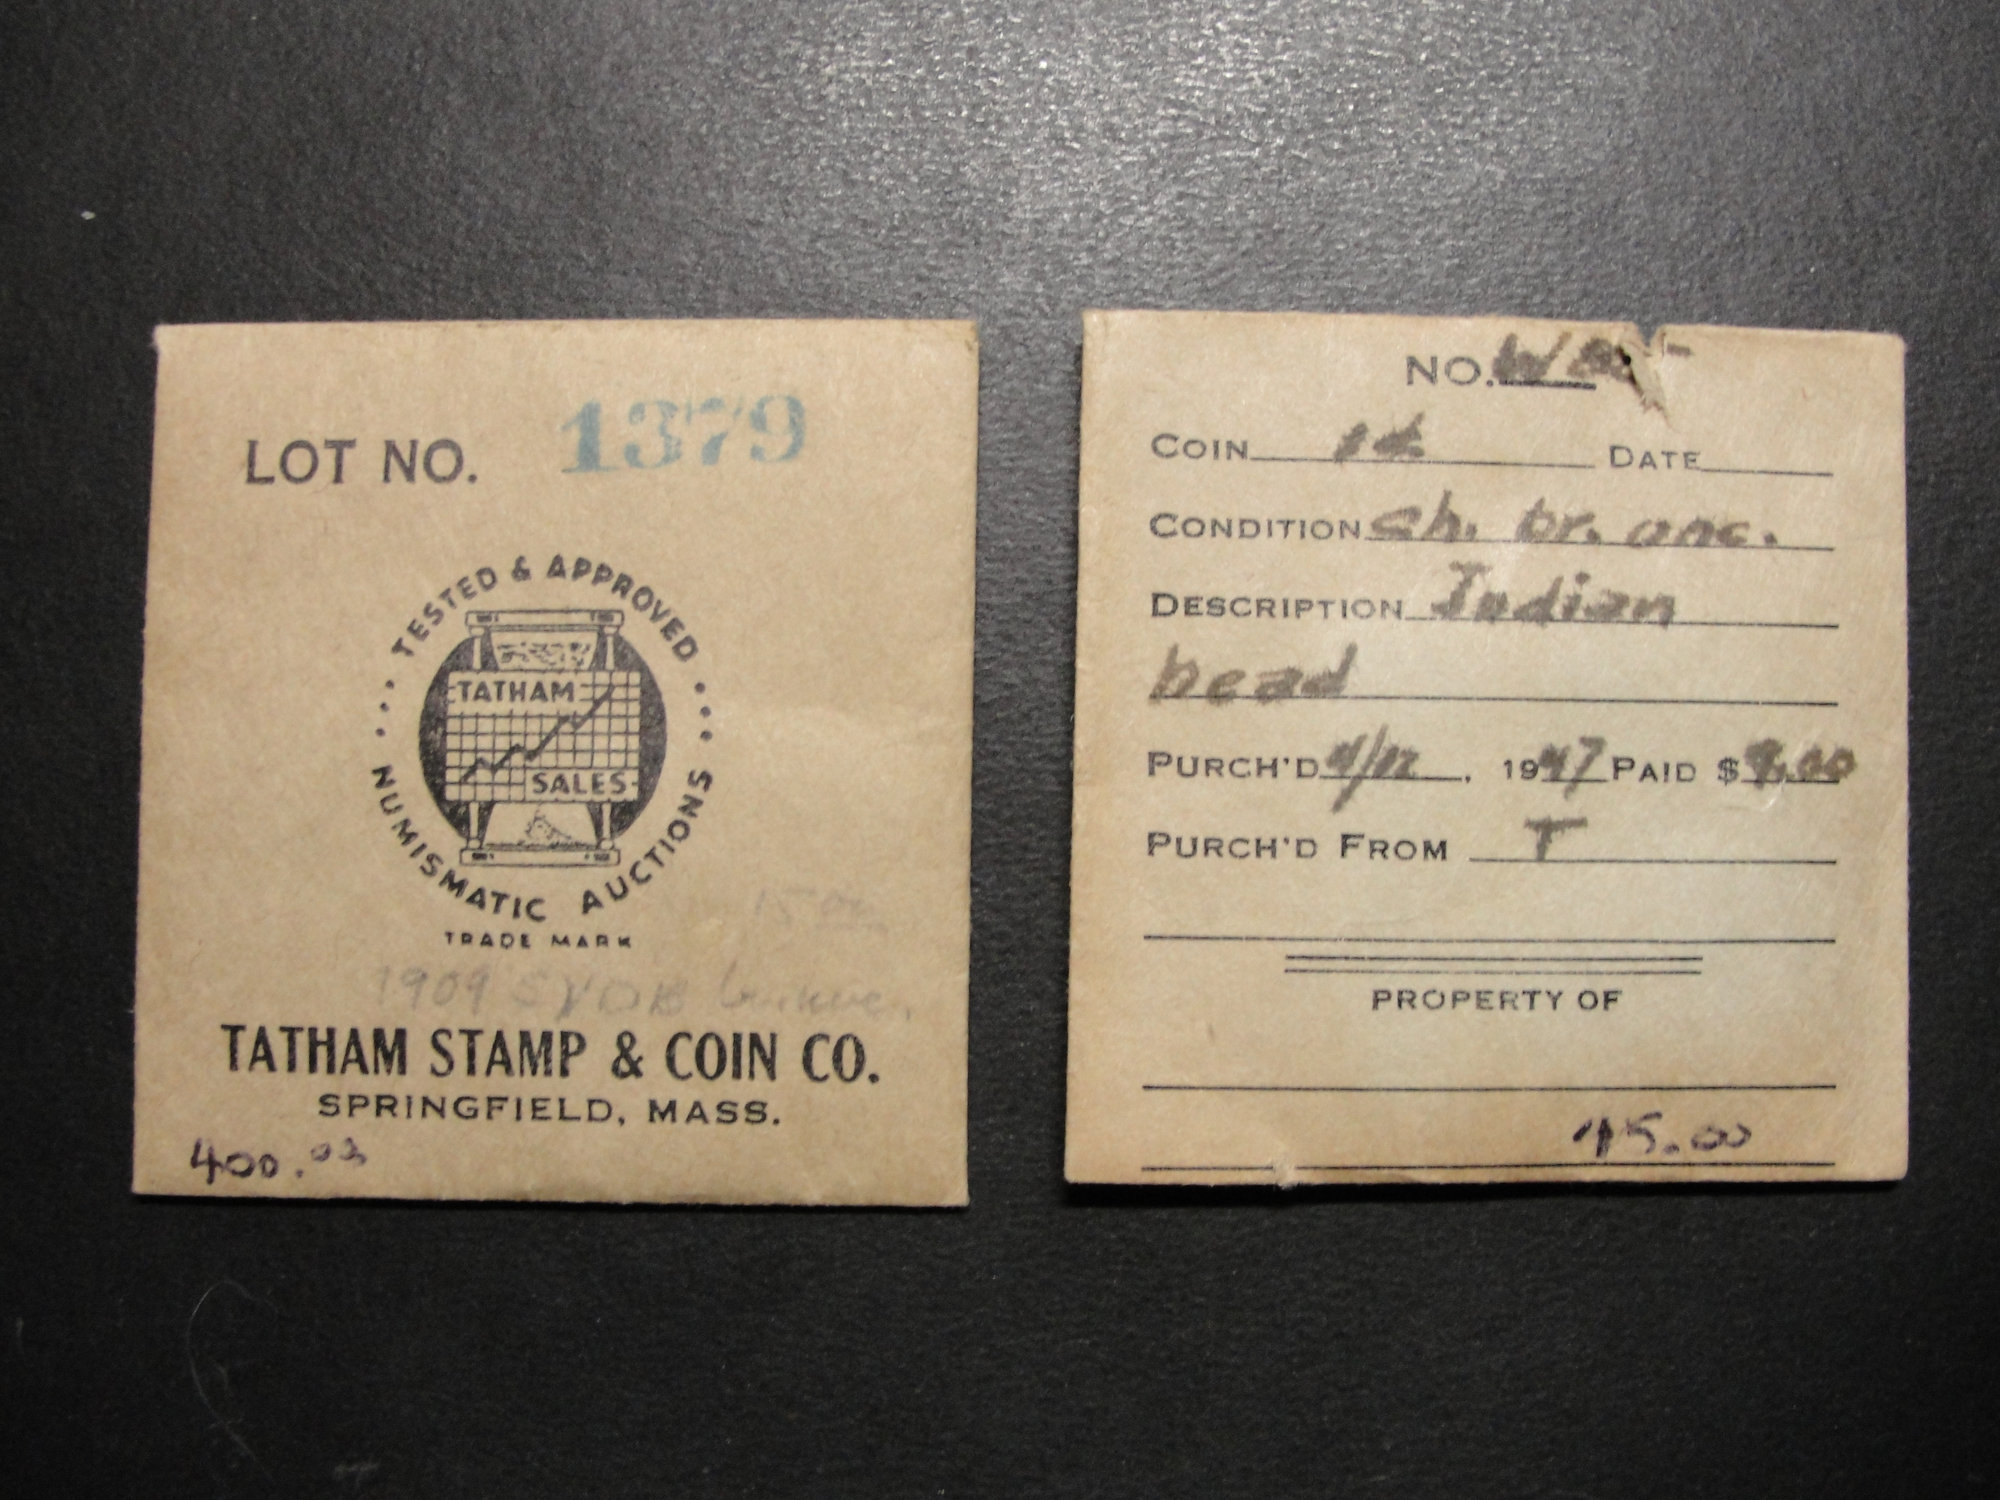 LOT NO. 1379
TESTED & APPROVED
TATHAM
SALES
NUMISMATIC AUCTIONS
TRADE MARK
1909 SVDB
TATHAM STAMP & COIN CO.
SPRINGFIELD, MASS.
400.00
NO.
COIN 1¢ DATE
CONDITION ch. br. unc.
DESCRIPTION Indian
head
PURCH'D , 1947 PAID $9.00
PURCH'D FROM T
PROPERTY OF
45.00